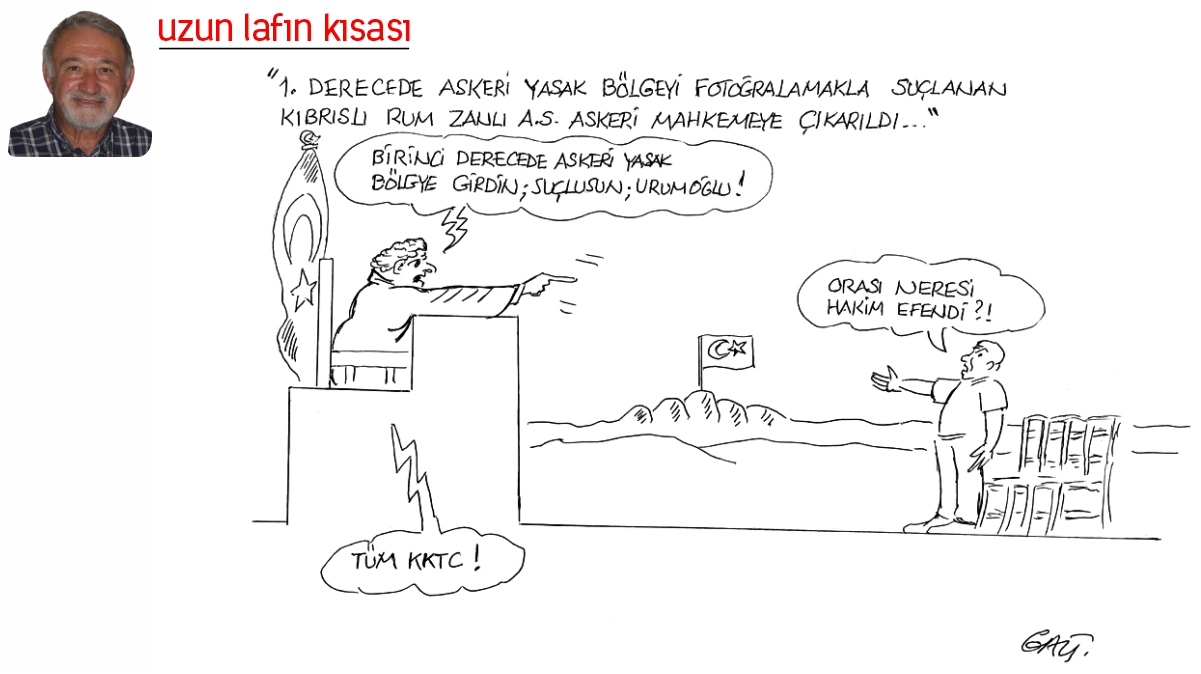 uzun lafın kısası
"1. DERECEDE ASKERİ YASAK BÖLGEYİ FOTOĞRALAMAKLA SUÇLANAN
KIBRISLI RUM ZANLI A.S. ASKERİ MAHKEMEYE ÇIKARILDI..."
BİRİNCİ DERECEDE ASKERİ YASAK
BÖLGYE GİRDİN; SUÇLUSUN; URUMOĞLU!
ORASI NERESİ
HAKİM EFENDİ?!
TÜM KKTC!